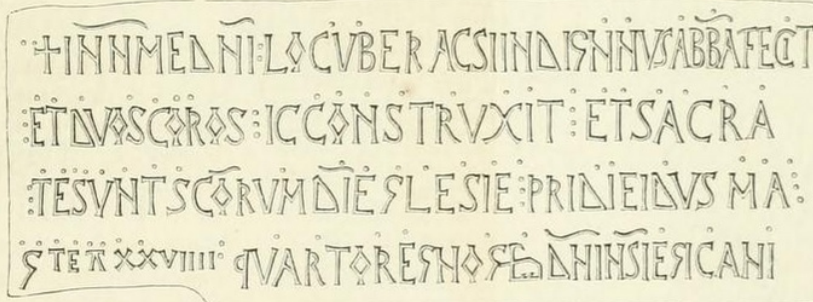 +INNMEDNI:LOCVBER ACSIINDIGNNVSABBAFECIT
:ETDVOSCOROS:ICCONSTRVXIT:ETSACRA
:TESVNTSCORVMDIEGLESIE:PRIDIEIDVS MA:
XXVIIII QVARTOREGNO DNINSIEGICANI